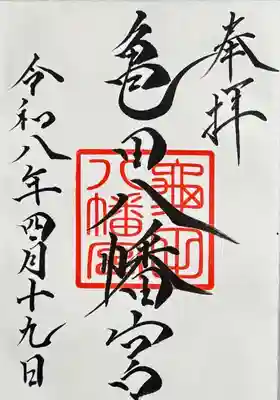 奉拝
亀田八幡宮
亀田八幡宮
令和八年四月十九日